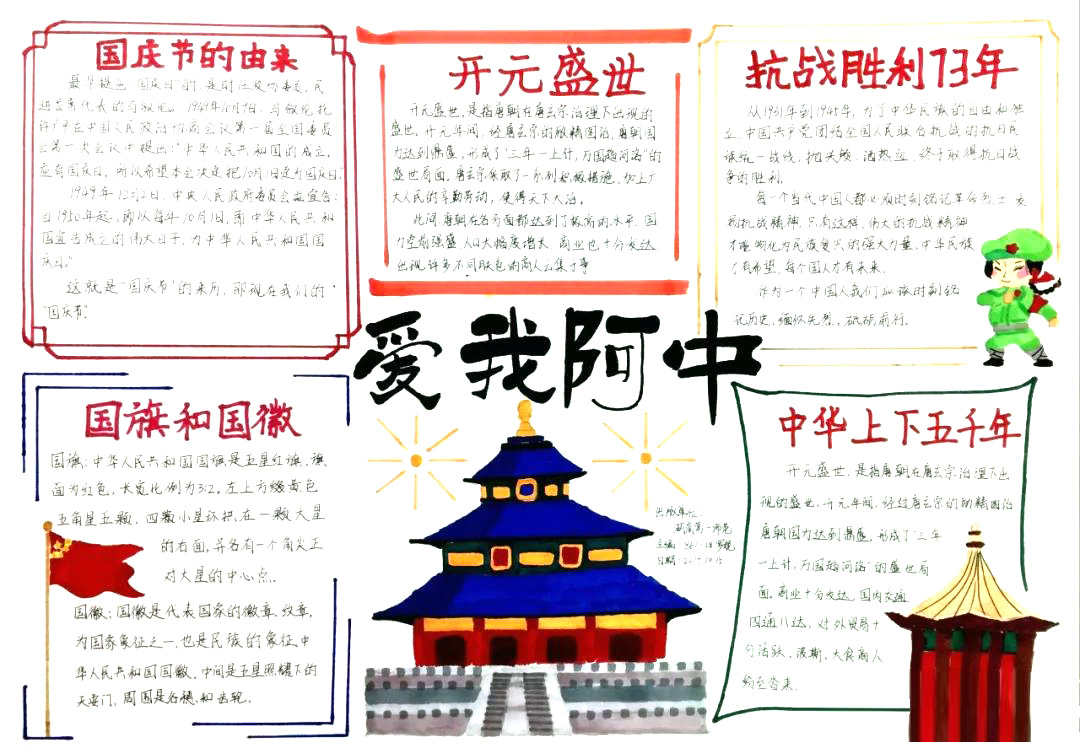 国庆节的由来
最早提出"国庆日"的是时任政协委员、民
进首席代表的马叙伦。1949年10月7日,马叙伦托
许广平在中国人民政治协商会议第一届全国委员
会第一次会议中提出:"中华人民共和国的成立,
应有国庆日,所以希望本会决定把10月1日定为国庆日。"
1949年12月2日,中央人民政府委员会宣告:
自1950年起,即以每年10月1日,即中华人民共和
国宣告成立的伟大日子,为中华人民共和国国
庆日。"
这就是"国庆节"的来历,那现在我们的
"国庆节"
开元盛世
开元盛世,是指唐朝在唐玄宗治理下出现的
盛世。开元年间,经唐玄宗的励精图治,唐朝国
力达到鼎盛,形成了"三年一上计,万国趋河洛"的
盛世局面,唐玄宗采取了一系列积极措施,加上广
大人民的辛勤劳动,使得天下大治。
此间唐朝在各方面都达到了极高的水平,国
力空前强盛,人口大幅度增长,商业也十分发达
出现许多不同肤色的商人云集于
抗战胜利73年
从1931年到1945年,为了中华民族的自由和独
立,中国共产党团结全国人民联合抗战的抗日民
族统一战线,抛头颅、洒热血,终于取得抗日战
争的胜利。
每一个当代中国人都必须时刻铭记革命烈士
抗战精神,只有这样,伟大的抗战精神
才能物化为民族复兴的强大力量,中华民族
才有希望,每个国人才有未来。
作为一个中国人我们应该时刻铭
记历史,缅怀先烈,砥砺前行。
爱我阿中
国旗和国徽
国旗:中华人民共和国国旗是五星红旗,旗
面为红色,长宽比例为3:2。左上方缀黄色
五角星五颗,四颗小星环拱在一颗大星
的右面,并各有一个角尖正
对大星的中心点。
国徽:国徽是代表国家的徽章、纹章,
为国家象征之一,也是民族的象征,中
华人民共和国国徽,中间是五星照耀下的
天安门,周围是谷穗和齿轮。
出版单位:
主编:
日期:
中华上下五千年
开元盛世,是指唐朝在唐玄宗治理下出
现的盛世,开元年间,经过唐玄宗的励精图治
唐朝国力达到鼎盛,形成了"三年
一上计,万国趋河洛"的盛世局
面,商业十分发达,国内交通
四通八达,对外贸易十
分活跃,波斯、大食商人
纷至沓来.